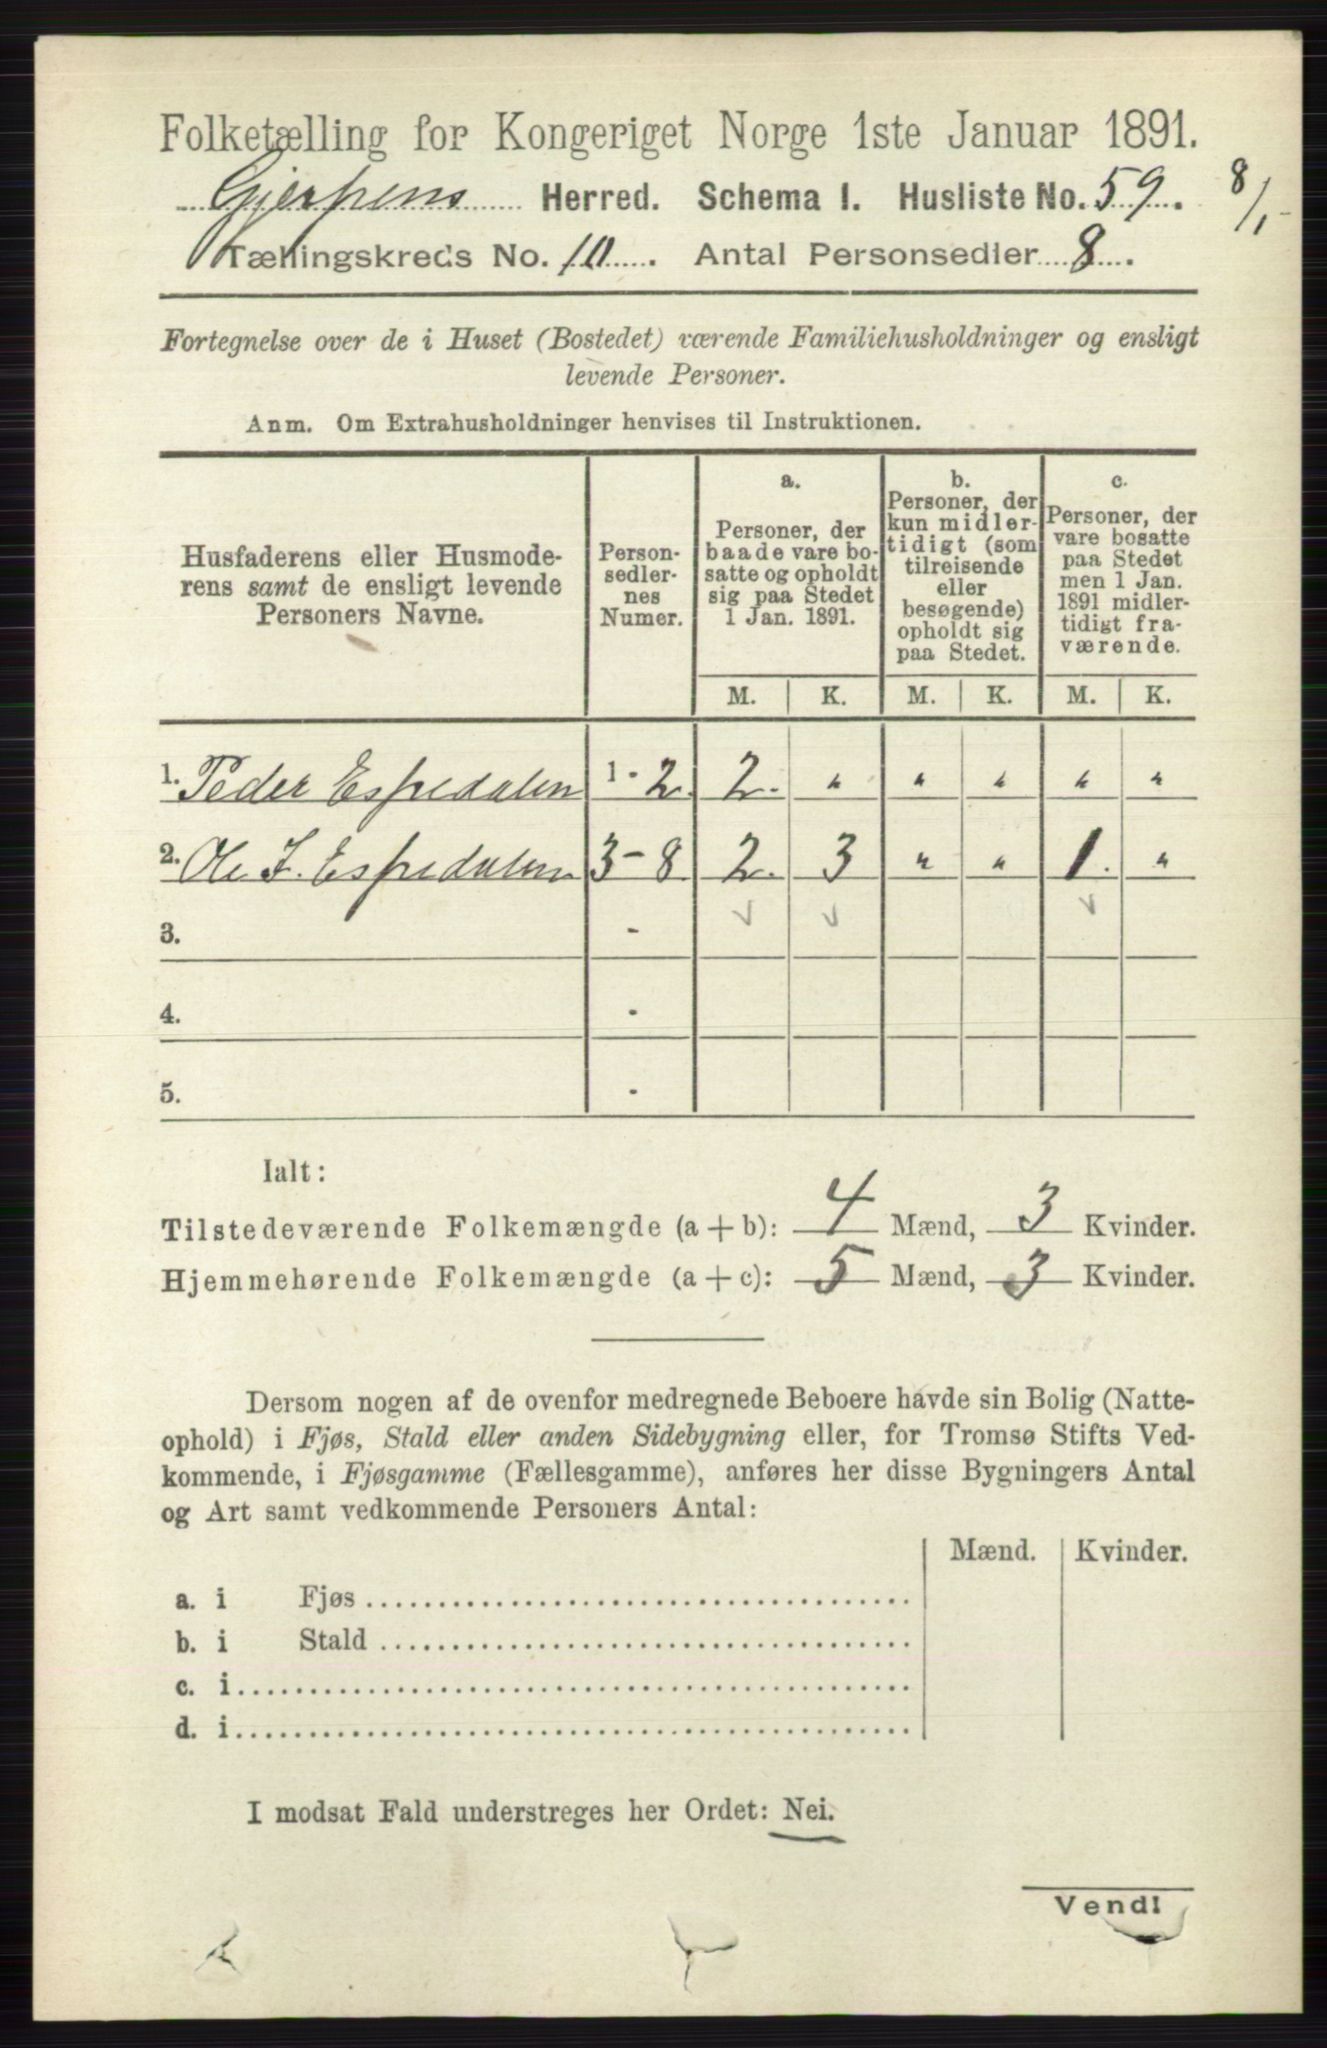 Folketælling for Kongeriget Norge 1ste Januar 1891.
Gjerpens Herred. Schema I. Husliste No. 59. 8/1
Tællingskreds No. 10. Antal Personsedler 8.
Fortegnelse over de i Huset (Bostedet) værende Familiehusholdninger og ensligt
levende Personer.
Anm. Om Extrahusholdninger henvises til Instruktionen.
Husfaderens eller Husmode-
rens samt de ensligt levende
Personers Navne.
Person-
sedler-
nes
Numer.
a.
Personer, der
baade vare bo-
satte og opholdt
sig paa Stedet
1 Jan. 1891.
b.
Personer, der
kun midler-
tidigt (som
tilreisende
eller
besøgende)
opholdt sig
paa Stedet.
c.
Personer, der
vare bosatte
paa Stedet
men 1 Jan.
1891 midler-
tidigt fra-
værende.
M. K. M. K. M. K.
1. Peder Espedalen 1-2. 2. " " " " "
2. Ole J. Espedalen 3-8 2. 3 " " 1. "
3. -
4. -
5. -
Ialt:
Tilstedeværende Folkemængde (a + b): 4 Mænd, 3 Kvinder.
Hjemmehørende Folkemængde (a + c): 5 Mænd, 3 Kvinder.
Dersom nogen af de ovenfor medregnede Beboere havde sin Bolig (Natte-
ophold) i Fjøs, Stald eller anden Sidebygning eller, for Tromsø Stifts Ved-
kommende, i Fjøsgamme (Fællesgamme), anføres her disse Bygningers Antal
og Art samt vedkommende Personers Antal:
Mænd. Kvinder.
a. i Fjøs
b. i Stald
c. i
d. i
I modsat Fald understreges her Ordet: Nei.
Vend!